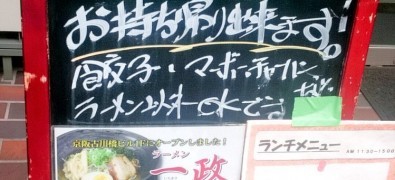 お持ち帰り出来ます。
餃子・マーボーチャーハン
など
ラーメン以外OKです!
京阪古川橋ビル1Fにオープンしました!
ラーメン
一政
ランチメニュー
AM 11:30~15:00